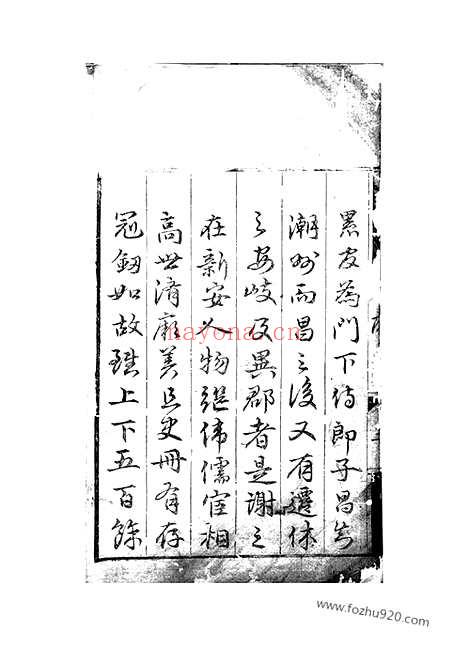 累官為門下侍郎子昌知
潮州而昌之後又有遷休
之安岐及異郡者是謝之
在新安人物繼偉儒宦相
高世濟厥美其史冊有存
冠劒如故譜上下五百餘
nayona.cn
www.fozhu920.com